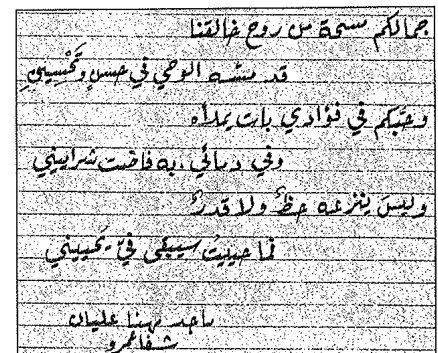 جمالكم مسحة من روح خالقنا
قد مسّه الوحي في حسنٍ وتَحْسِينِ
وحبّكم في فؤادي بات يملأه
وفي دمائي به فاضت شراييني
وليسَ ينزعه حظٌ ولا قدرٌ
فما حييتُ سيبقى فيّ يُحييني
ماجد مهنا عليان
شفاعمرو